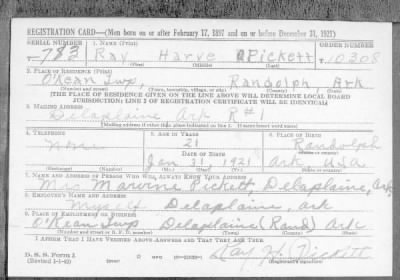 REGISTRATION CARD—(Men born on or after February 17, 1897 and on or before December 31, 1921)
SERIAL NUMBER 1. NAME (Print) ORDER NUMBER
783 Ray Harve Pickett 10308
(First) (Middle) (Last)
2. PLACE OF RESIDENCE (Print)
O'Kean Twp, Randolph, Ark
(Number and street) (Town, township, village, or city) (County) (State)
[THE PLACE OF RESIDENCE GIVEN ON THE LINE ABOVE WILL DETERMINE LOCAL BOARD
JURISDICTION; LINE 2 OF REGISTRATION CERTIFICATE WILL BE IDENTICAL]
3. MAILING ADDRESS
Delaplaine Ark R#1
[Mailing address if other than place indicated on line 2. If same insert word same]
4. TELEPHONE 5. AGE IN YEARS 6. PLACE OF BIRTH
None 21 Randolph
DATE OF BIRTH
Jan 31, 1921 Ark USA
7. NAME AND ADDRESS OF PERSON WHO WILL ALWAYS KNOW YOUR ADDRESS
Mrs Marvine Pickett, Delaplaine, Ark
8. EMPLOYER'S NAME AND ADDRESS
Myself Delaplaine, Ark
9. PLACE OF EMPLOYMENT OR BUSINESS
O'Kean Twp Delaplaine (Rand) Ark
(Number and street or R. F. D. number) (Town) (County) (State)
I AFFIRM THAT I HAVE VERIFIED ABOVE ANSWERS AND THAT THEY ARE TRUE.
D. S. S. Form 1
(Revised 1-1-42) (over) Ray H. Pickett